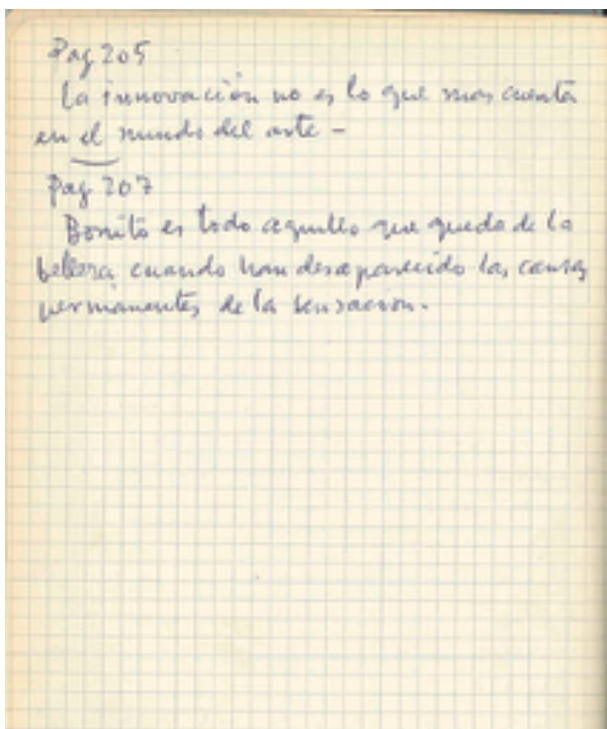 Pag 205
La innovación no es lo que mas cuenta
en el mundo del arte –
Pag 207
Bonito es todo aquello que queda de la
belleza cuando han desaparecido las causas
permanentes de la sensacion.